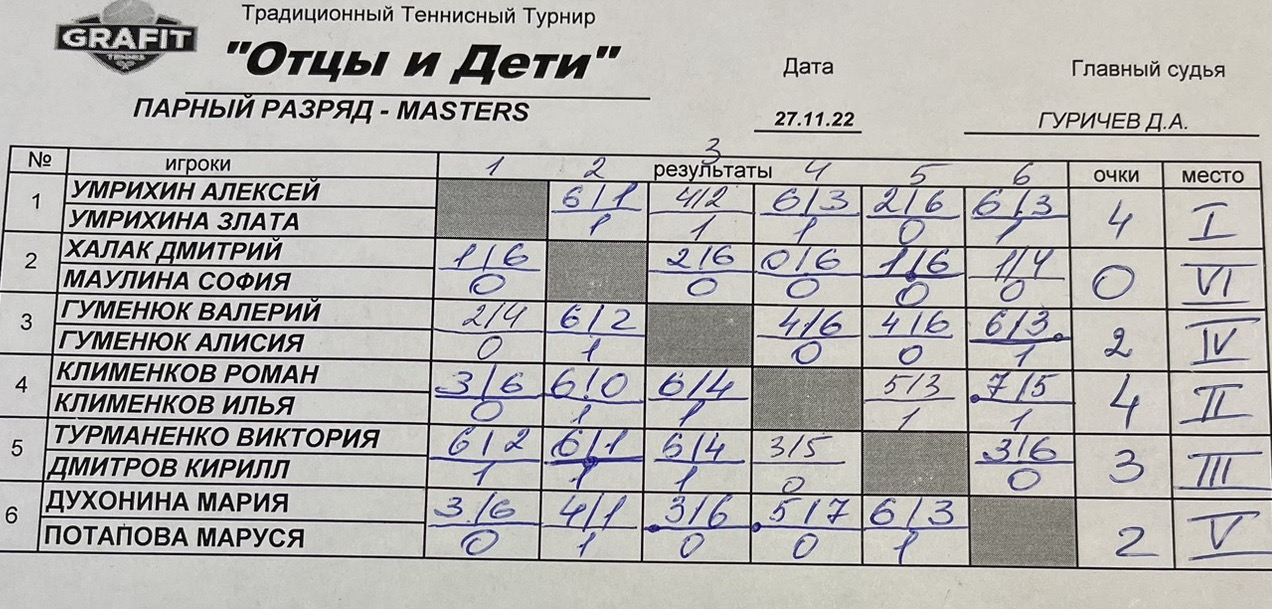 Традиционный Теннисный Турнир
GRAFIT
TENNIS
"Отцы и Дети"
Дата
Главный судья
ПАРНЫЙ РАЗРЯД - MASTERS
27.11.22
ГУРИЧЕВ Д.А.
№ игроки 1 2 3 результаты 4 5 6 очки место
1 УМРИХИН АЛЕКСЕЙ 6/1 4/2 6/3 2/6 6/3 4 I
УМРИХИНА ЗЛАТА 1 1 1 0 1
2 ХАЛАК ДМИТРИЙ 1/6 2/6 0/6 1/6 1/4 0 VI
МАУЛИНА СОФИЯ 0 0 0 0 0
3 ГУМЕНЮК ВАЛЕРИЙ 2/4 6/2 4/6 4/6 6/3 2 IV
ГУМЕНЮК АЛИСИЯ 0 1 0 0 1
4 КЛИМЕНКОВ РОМАН 3/6 6/0 6/4 5/3 7/5 4 II
КЛИМЕНКОВ ИЛЬЯ 0 1 1 1 1
5 ТУРМАНЕНКО ВИКТОРИЯ 6/2 6/1 6/4 3/5 3/6 3 III
ДМИТРОВ КИРИЛЛ 1 1 1 0 0
6 ДУХОНИНА МАРИЯ 3/6 4/1 3/6 5/7 6/3 2 V
ПОТАПОВА МАРУСЯ 0 1 0 0 1